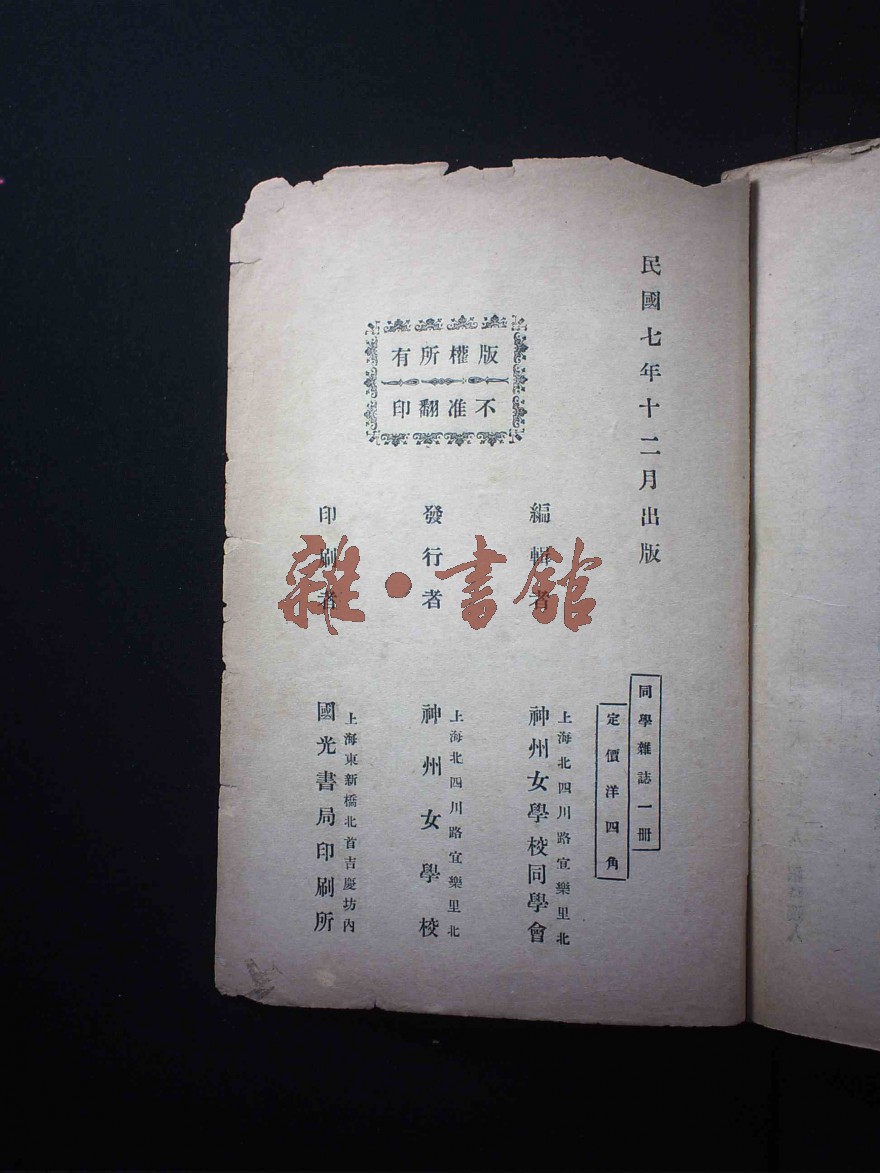 民國七年十二月出版
同學雜誌一册
定價洋四角
版權所有
不准翻印
編輯者
上海北四川路宜樂里北
神州女學校同學會
發行者
上海北四川路宜樂里北
神州女學校
印刷者
上海東新橋北首吉慶坊內
國光書局印刷所
雜·書館